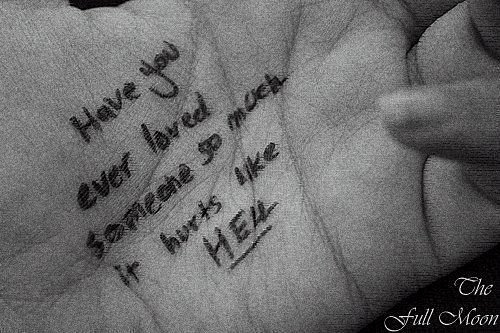 Have you
ever loved
someone so much
it hurts like
HELL
The
Full Moon